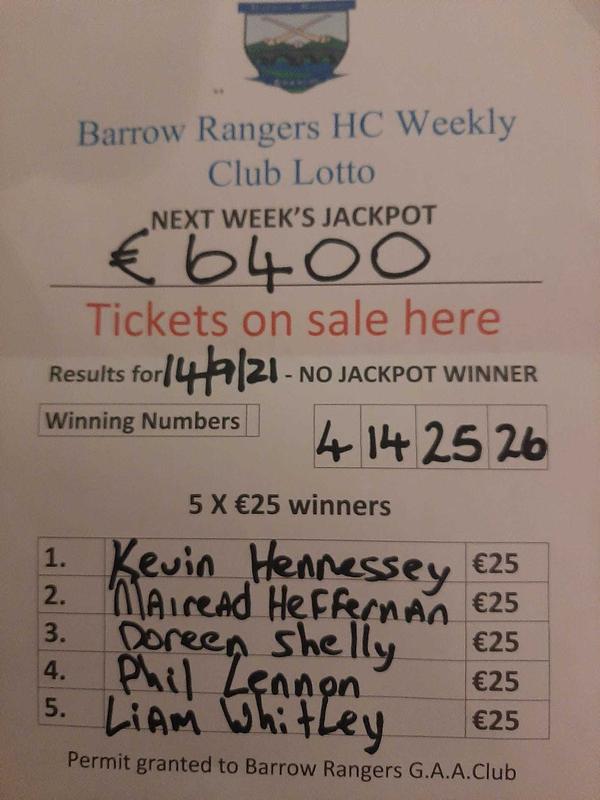 Barrow Rangers HC Weekly
Club Lotto
NEXT WEEK'S JACKPOT
€ 6400
Tickets on sale here
Results for 14/9/21 - NO JACKPOT WINNER
Winning Numbers 4 14 25 26
5 X €25 winners
1. Kevin Hennessey €25
2. MAIreAD HeFFernAN €25
3. Doreen Shelly €25
4. Phil Lennon €25
5. LIAM WhitLey €25
Permit granted to Barrow Rangers G.A.A.Club